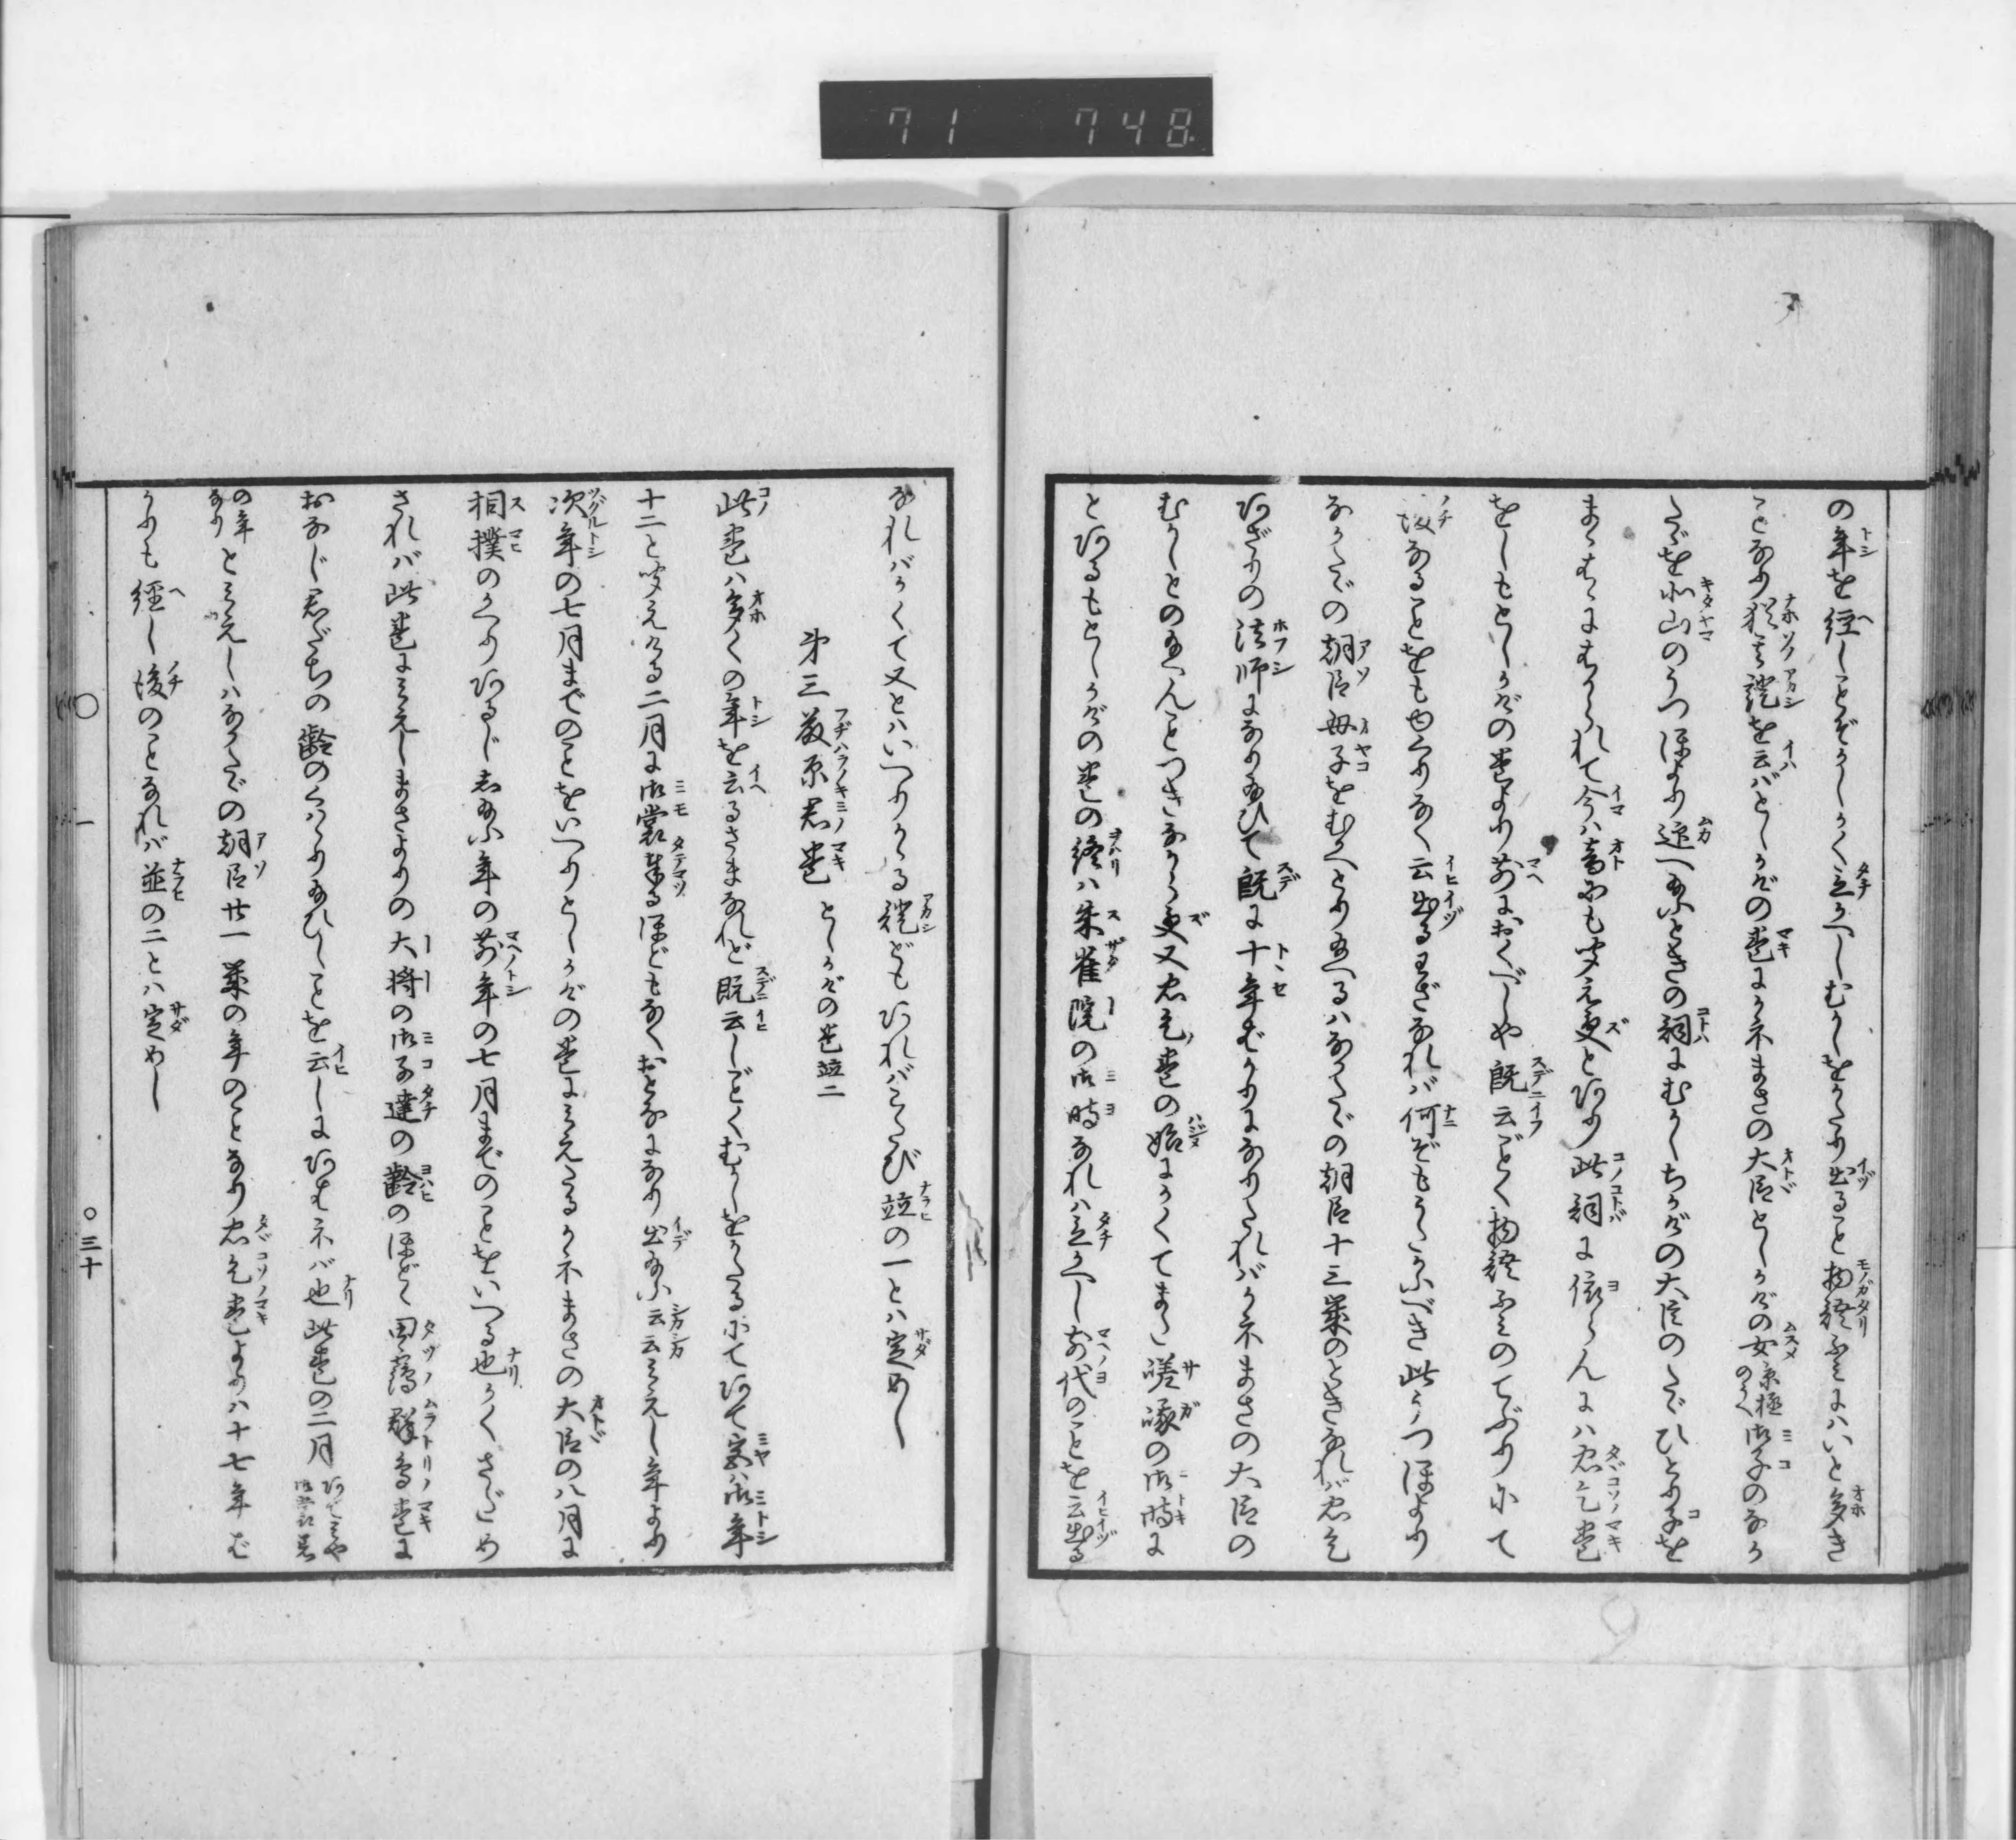 71 748
の年を經しことぞかしかく立かへしむかしをかたり出ること物語ぶミにハいと多き
ことなり猶其證を云バとしかげの巻にかネまさの大臣としかげの女京極御子のなか
たゞを北山のうつほより迎へ給ふときの詞にむかしちかげの大臣のたゞひとり子を
まゝはゝにはかられて今ハ音にも聞え更とあり此詞に依らんにハ忠こそ巻
をしもとしかげの巻より前におくべしや既云ごとく物語ぶミのてぶりにて
後なることをもゆくりなく云出るわざなれバ何ぞもうたがふべき此うつほより
なかたゞの朝臣母子をむかへとり給へるハなかたゞの朝臣十三歳のときなれバ忠こそ
あざりの法師になり給ひて既に十年ばかりになりたれバかネまさの大臣の
むかしとのたまへんことつきなから更又忠こそ巻の始にかくてまた嵯峨の御時に
とあるもとしかげの巻の終ハ朱雀院の御時なれハ立かへし前代のことを云出る
なれバかくて又とハいへりかゝる證どもあれバこたび竝の一とハ定めし
第三藤原君巻 としかげの巻竝二
此巻ハ多くの年を云るさまなれど既云しごとくむかしをかたるにてあて宮ハ御年
十二と聞えける二月に御裳奉るほどもなくおとなになり出給ふ云云とミえし年より
次年の七月までのことをいへりとしかげの巻にミえたるかネまさの大臣の八月に
相撲のかへりあるじし給ふ年の前年の七月までのことをいへる也かくさだめ
されバ此巻にミえしまさよりの大將の御子達の齢のほどゝ田鶴群鳥巻に
おなじ君だちの齢のくはゝり給ひしことを云しにあはネバ也此巻の二月あてミや御裳着
の年なりとミえしハなかたゞの朝臣廿一歳の年のことなり忠こそ巻よりハ十七年ば
かりも經し後のことなれバ竝の二とハ定めし
○三十